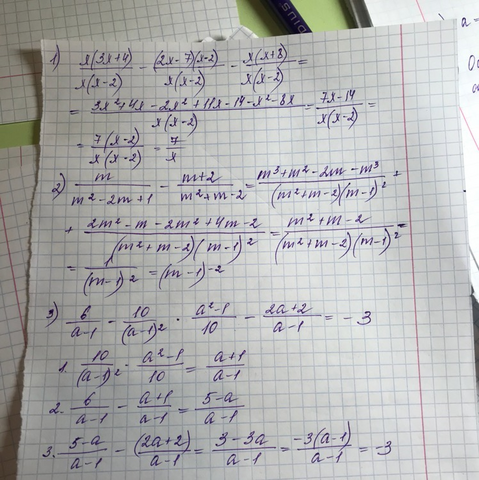 SNId
a =
1) x(3x+4)/x(x-2) - (2x-7)(x-2)/x(x-2) - x(x+8)/x(x-2) =
= 3x²+4x-2x²+11x-14-x²-8x/x(x-2) = 7x-14/x(x-2) =
= 7(x-2)/x(x-2) = 7/x
2) m/m²-2m+1 - m+2/m²+m-2 = m³+m²-2m-m³/(m²+m-2)(m-1)² +
+ 2m²-m-2m²+4m-2/(m²+m-2)(m-1)² = m²+m-2/(m²+m-2)(m-1)² =
= 1/(m-1)² = (m-1)⁻²
3) 6/a-1 - 10/(a-1)² · a²-1/10 - 2a+2/a-1 = -3
1. 10/(a-1)² · a²-1/10 = a+1/a-1
2. 6/a-1 - a+1/a-1 = 5-a/a-1
3. 5-a/a-1 - (2a+2)/a-1 = 3-3a/a-1 = -3(a-1)/a-1 = -3